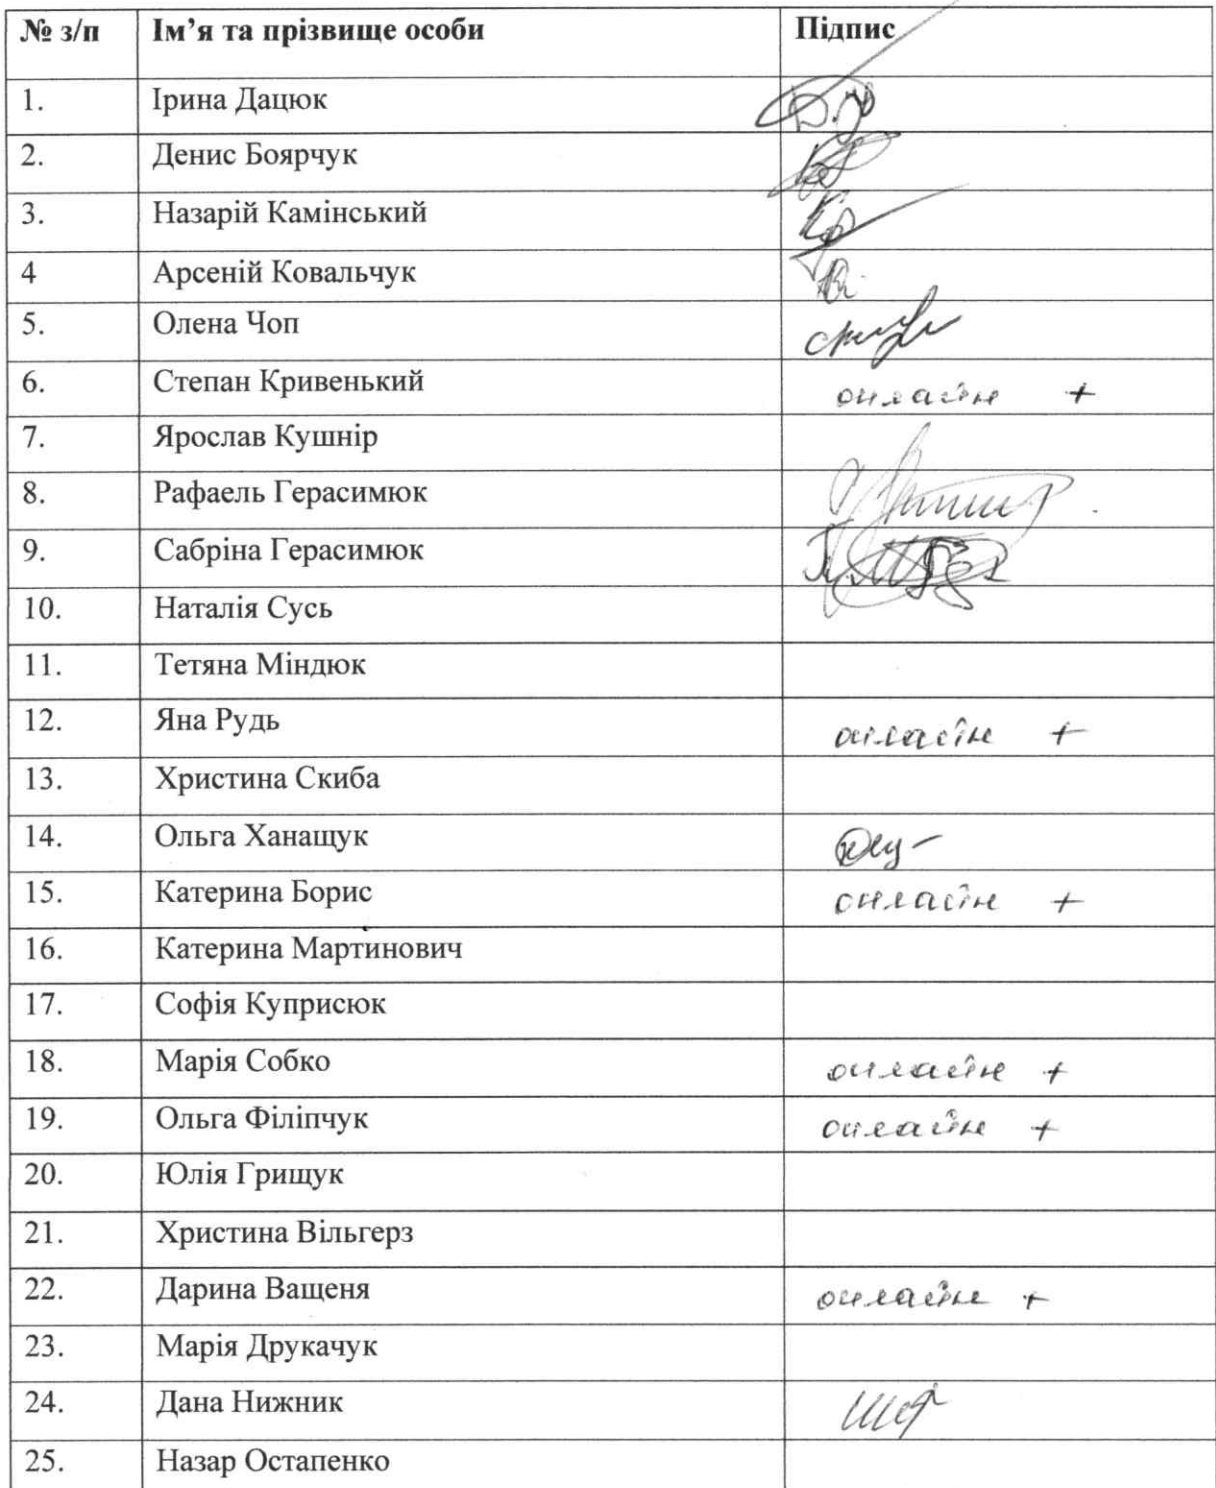 № з/п Ім’я та прізвище особи Підпис
1. Ірина Дацюк
2. Денис Боярчук
3. Назарій Камінський
4 Арсеній Ковальчук
5. Олена Чоп
6. Степан Кривенький онлайн +
7. Ярослав Кушнір
8. Рафаель Герасимюк
9. Сабріна Герасимюк
10. Наталія Сусь
11. Тетяна Міндюк
12. Яна Рудь онлайн +
13. Христина Скиба
14. Ольга Ханащук
15. Катерина Борис онлайн +
16. Катерина Мартинович
17. Софія Куприсюк
18. Марія Собко онлайн +
19. Ольга Філіпчук онлайн +
20. Юлія Грищук
21. Христина Вільгерз
22. Дарина Ващеня онлайн +
23. Марія Друкачук
24. Дана Нижник
25. Назар Остапенко